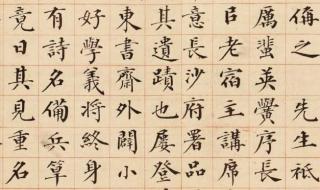 偁之先生祇
厲蜚英黌序長
㠯老宿主講席
意長沙府署品
其遺蹟也屢登
東書齋外闢小
好學義將終身
有詩名備兵算
竟日其見重名